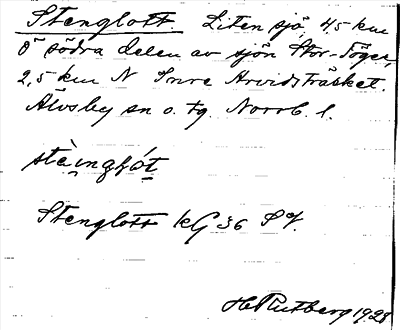 Stenglott. Liten sjö, 4,5 km
Ö södra delen av sjön Stor-Töger,
2,5 km N Inre Arvidsträsket.
Älvsby sn o. tg. Norrb. l.
Stenglott kG 36 SV.
H. Rutberg 1928